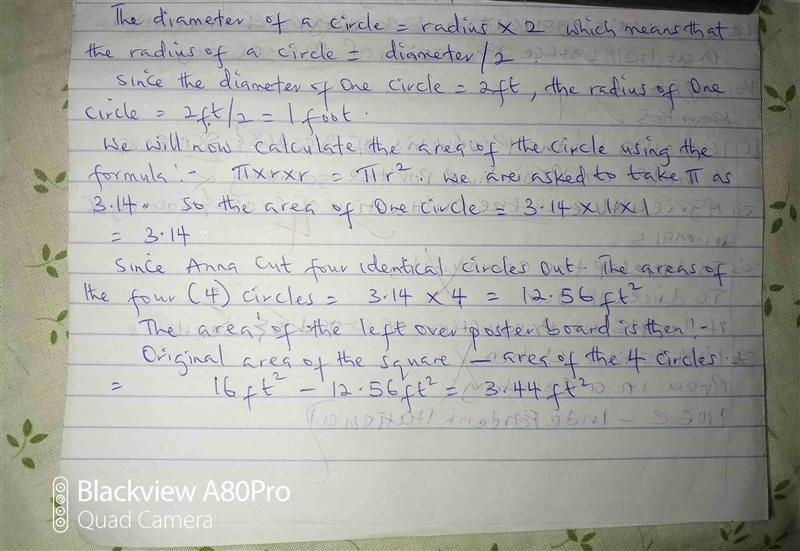 The diameter of a circle = radius × 2 which means that
the radius of a circle = diameter/2.
Since the diameter of one circle = 2ft, the radius of one
circle = 2ft/2 = 1 foot.
We will now calculate the area of the circle using the
formula:- π×r×r = πr². We are asked to take π as
3.14. So the area of one circle = 3.14 × 1 × 1
= 3.14
Since Anna cut four identical circles out. The areas of
the four (4) circles = 3.14 × 4 = 12.56 ft²
The area of the left over poster board is then:-
Original area of the square – area of the 4 circles
= 16ft² – 12.56ft² = 3.44ft²
Blackview A80Pro
Quad Camera